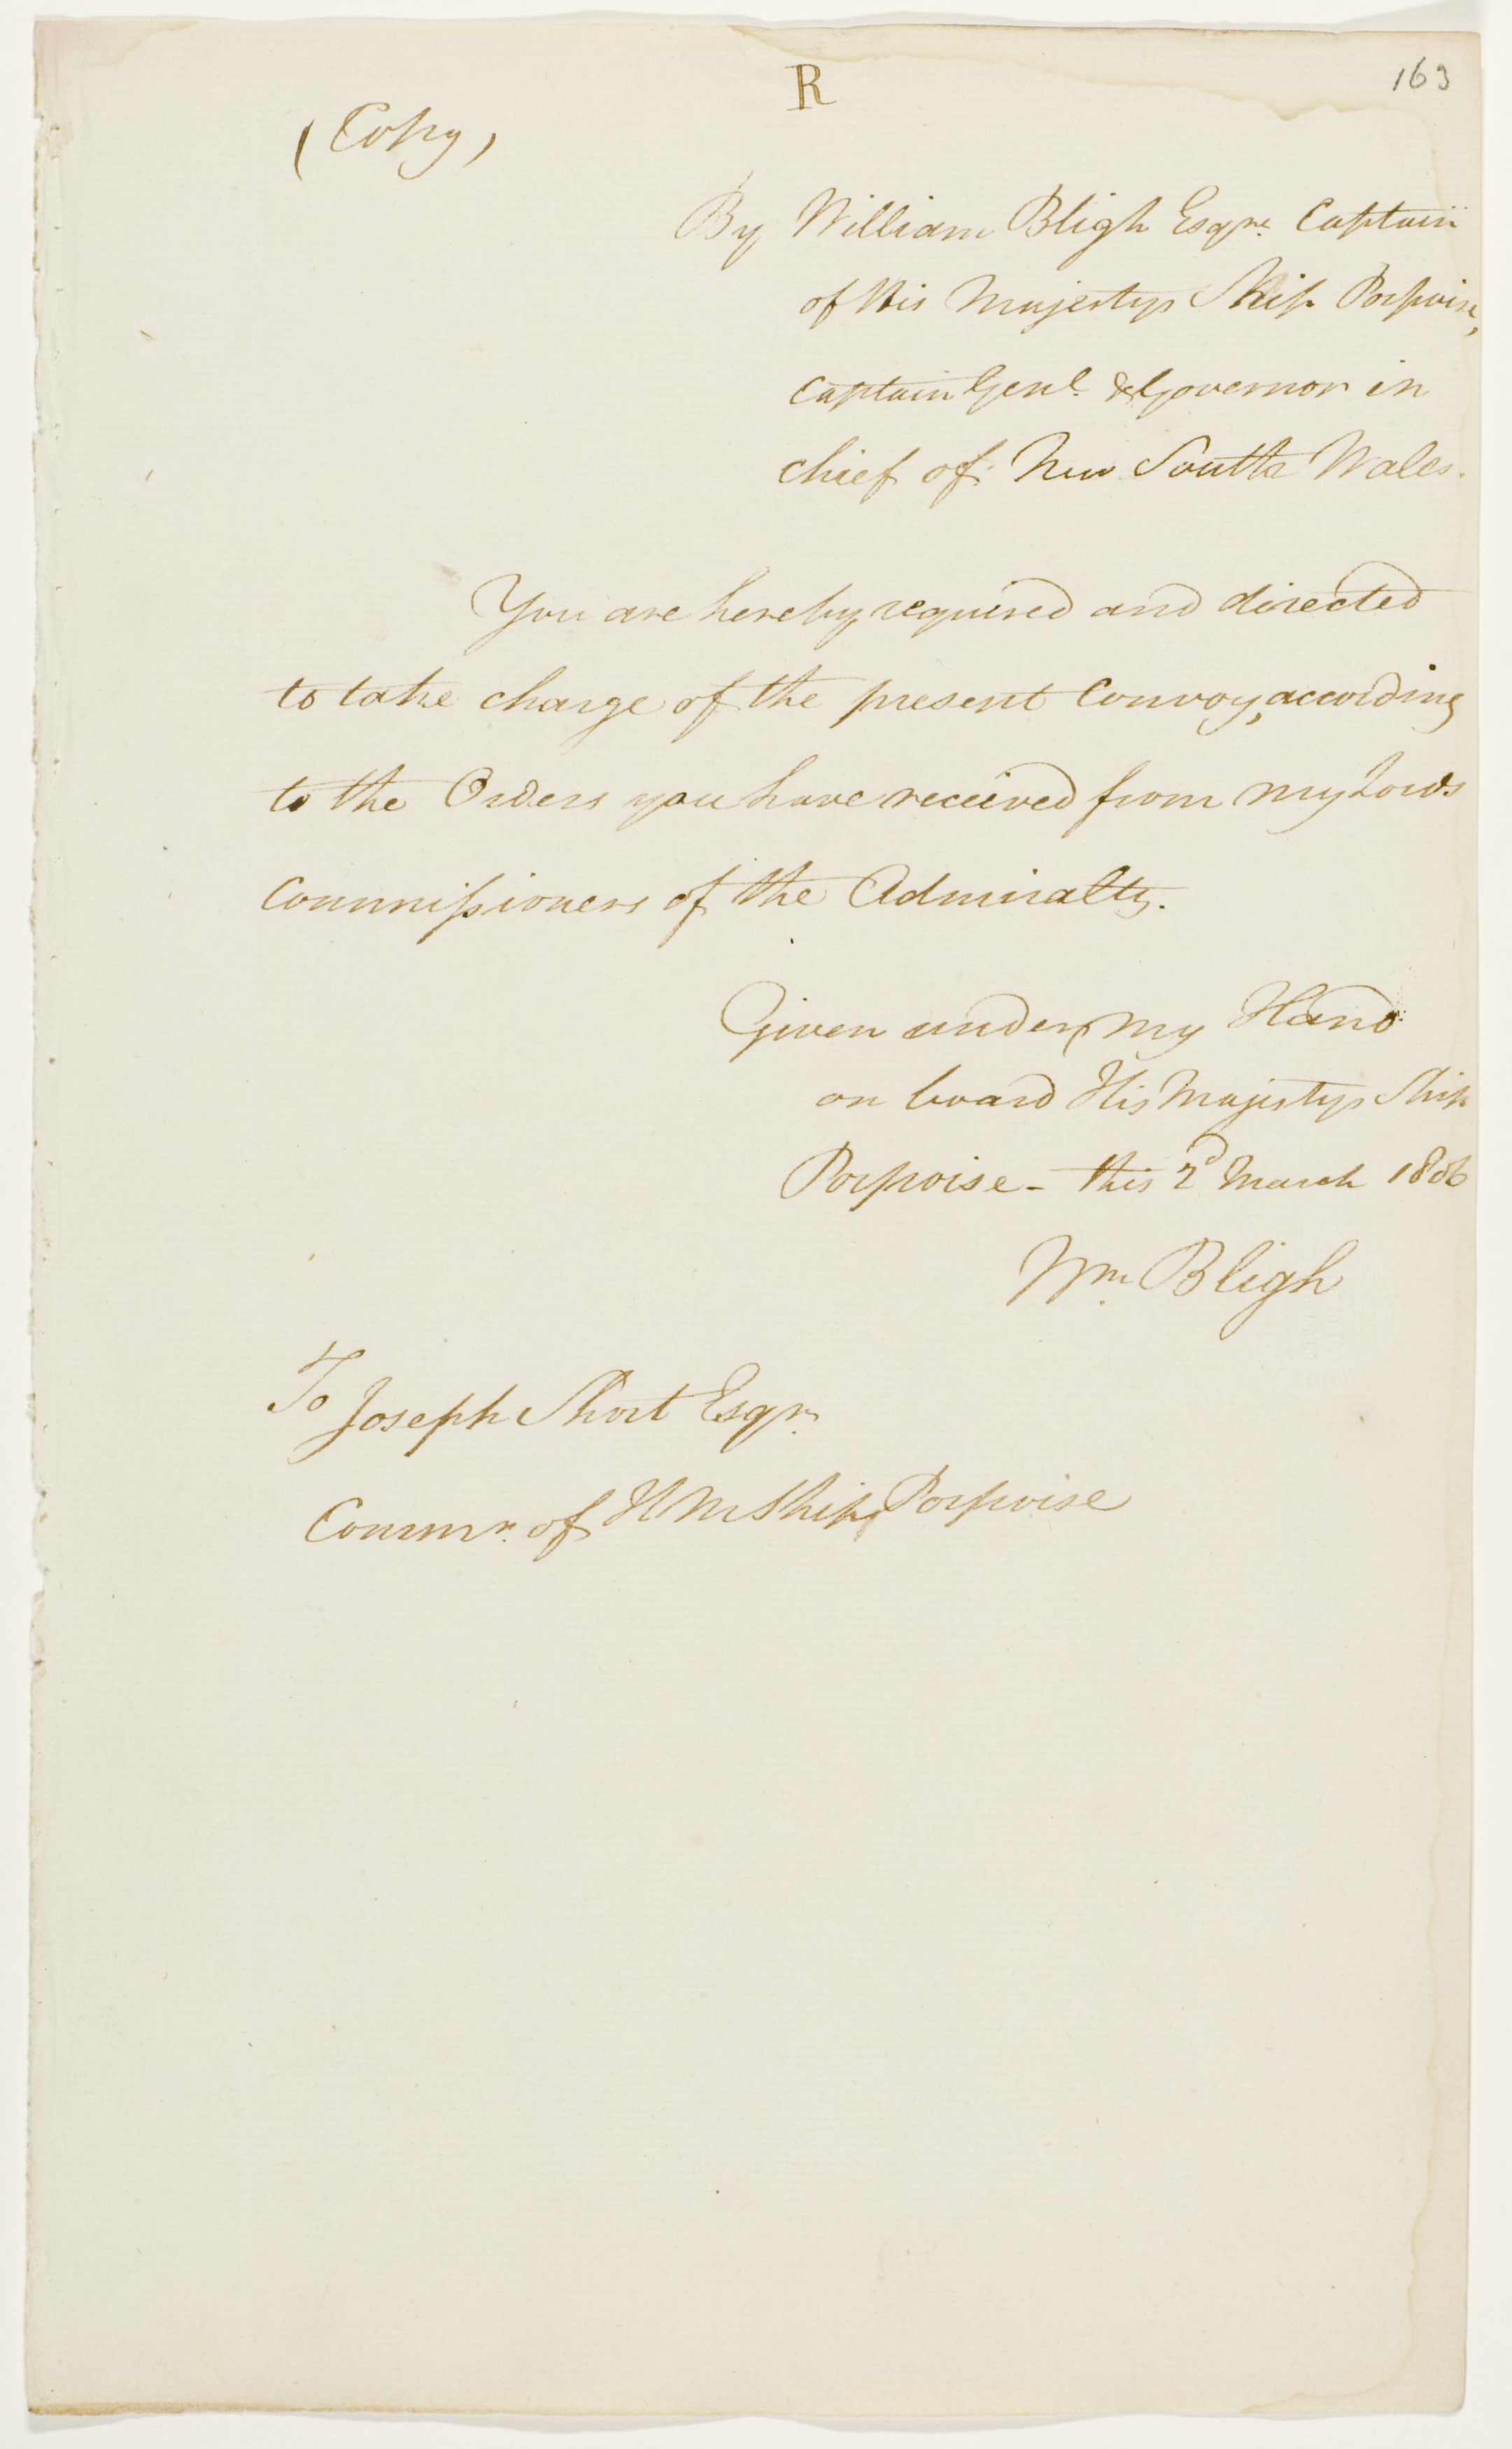 R
163
(Copy)
By William Bligh Esqre. Captain
of His Majestys Ship Porpoise,
Captain Genl. & Governor in
chief of New South Wales.
You are hereby required and directed
to take charge of the present Convoy, according
to the Orders you have received from my Lords
Commissioners of the Admiralty.
Given under my Hand
on board His Majestys Ship
Porpoise - this 2d March 1806
Wm. Bligh
To
Joseph Short Esqr.
Commr. of H M Ship Porpoise